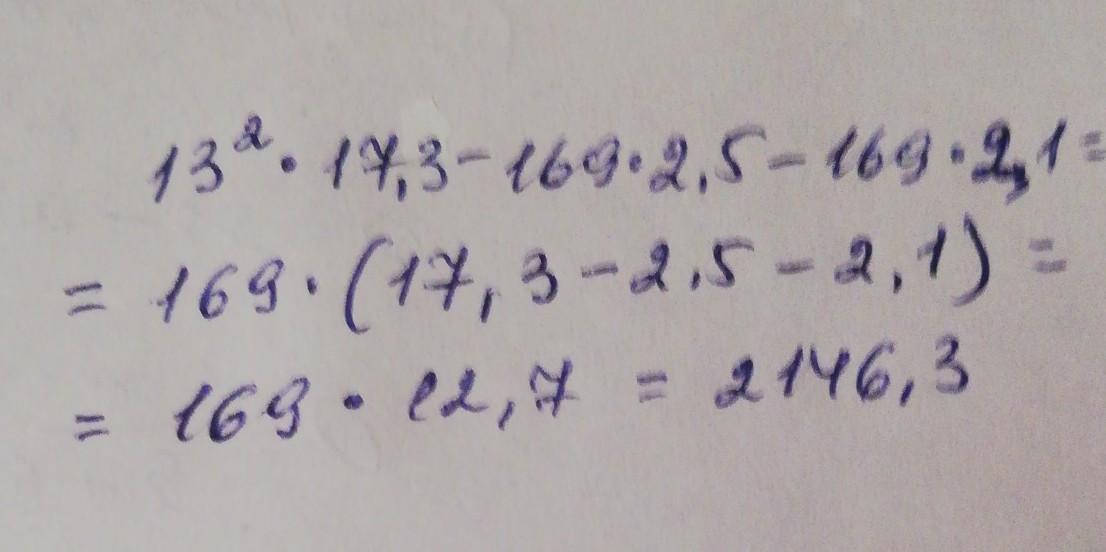 13²·17,3-169·2,5-169·2,1=
=169·(17,3-2,5-2,1)=
=169·12,7=2146,3